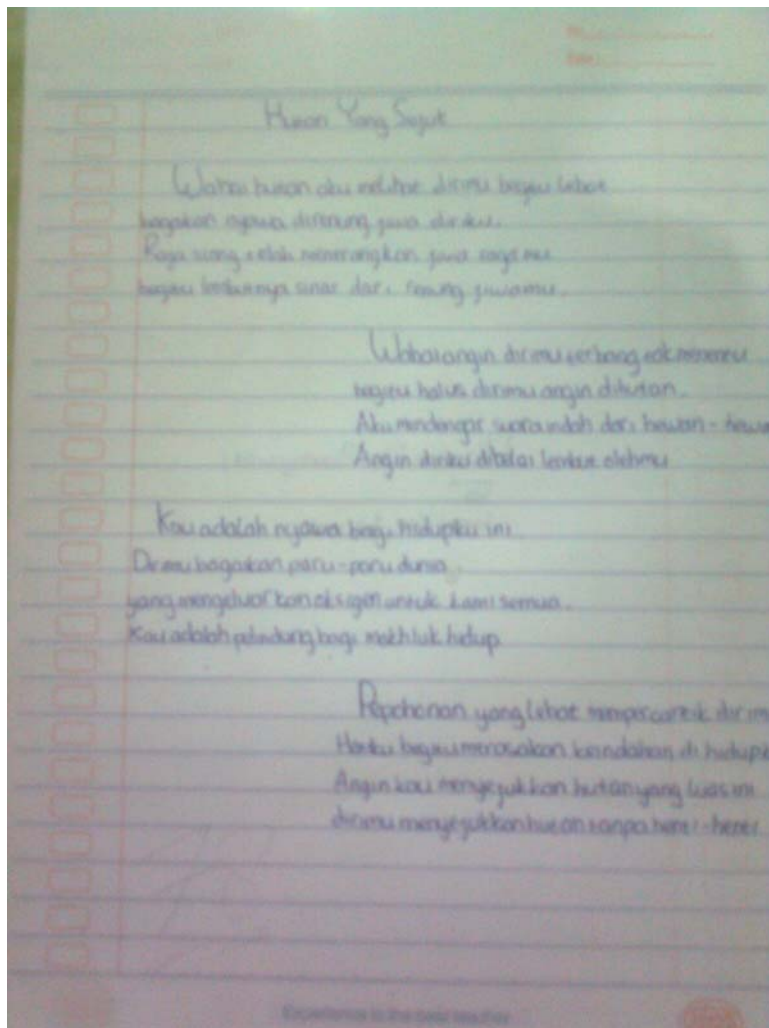 No.
Date
Hutan Yang Sejuk
Wahai hutan aku melihat dirimu begitu lebat
bagaikan nyawa direnung jiwa diriku.
Raja siang telah menerangkan jiwa ragamu
begitu sinar dari jiwamu.
Wahai angin dirimu terbang tak menentu
begitu halus dirimu angin dihutan.
Aku mendengar suara indah dari hewan-hewa
Angin diriku dibelai lembut olehmu
Kau adalah nyawa bagi hidupku ini
Dirimu bagaikan paru-paru dunia
yang mengeluarkan oksigen untuk kami semua.
Kau adalah pelindung bagi makhluk hidup
Pepohonan yang lebat mempercantik dirim
Hatiku begitu merasakan keindahan di hidup
Angin kau menyejukkan hutan yang luas ini
dirimu menyejukkan hutan tanpa henti-henti
Experience is the best teacher